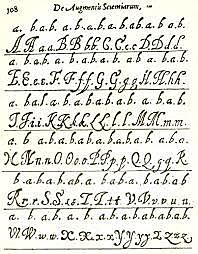 308 De Augmentis Scientiarum,
a. b. a. b. a. b. a. b. a. b. a. b. a. b.
A. A. a. a. B. B. b. b. C. C. c. c. D. D. d. d.
a. b. a. b. a. b. a. b. a. b. a. b. a. b. a. b.
E. E. e. e. F. F. f. f. G. G. g. g. H. H. h. h.
a. b. a. b. a. b. a. b. a. b. a. b. a. b. a. b.
I. I. i. i. K. K. k. k. L. L. l. l. M. M. m. m.
a. b. a. b. a. b. a. b. a. b. a. b. a. b. a.
N. N. n. n. O. O. o. o. P. P. p. p. Q. Q. q. q. R.
b. a. b. a. b. a. b. a. b. a. b. a. b. a. b.
R. r. r. S. S. s. s. T. T. t. t. V. V. v. v. u. u.
a. b. a. b. a. b. a. b. a. b. a. b. a. b.
W. W. w. w. X. X. x. x. Y. Y. y. y. Z. Z. z. z.